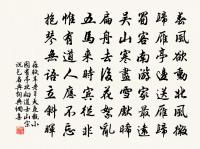 春風欲動北風微
歸雁亭邊送雁歸
蜀客南遊家最遠
吳山寒盡雪先晞
扁舟去後花絮亂
五馬來時賓從非
惟有道人應不忘
抱琴無語立斜暉